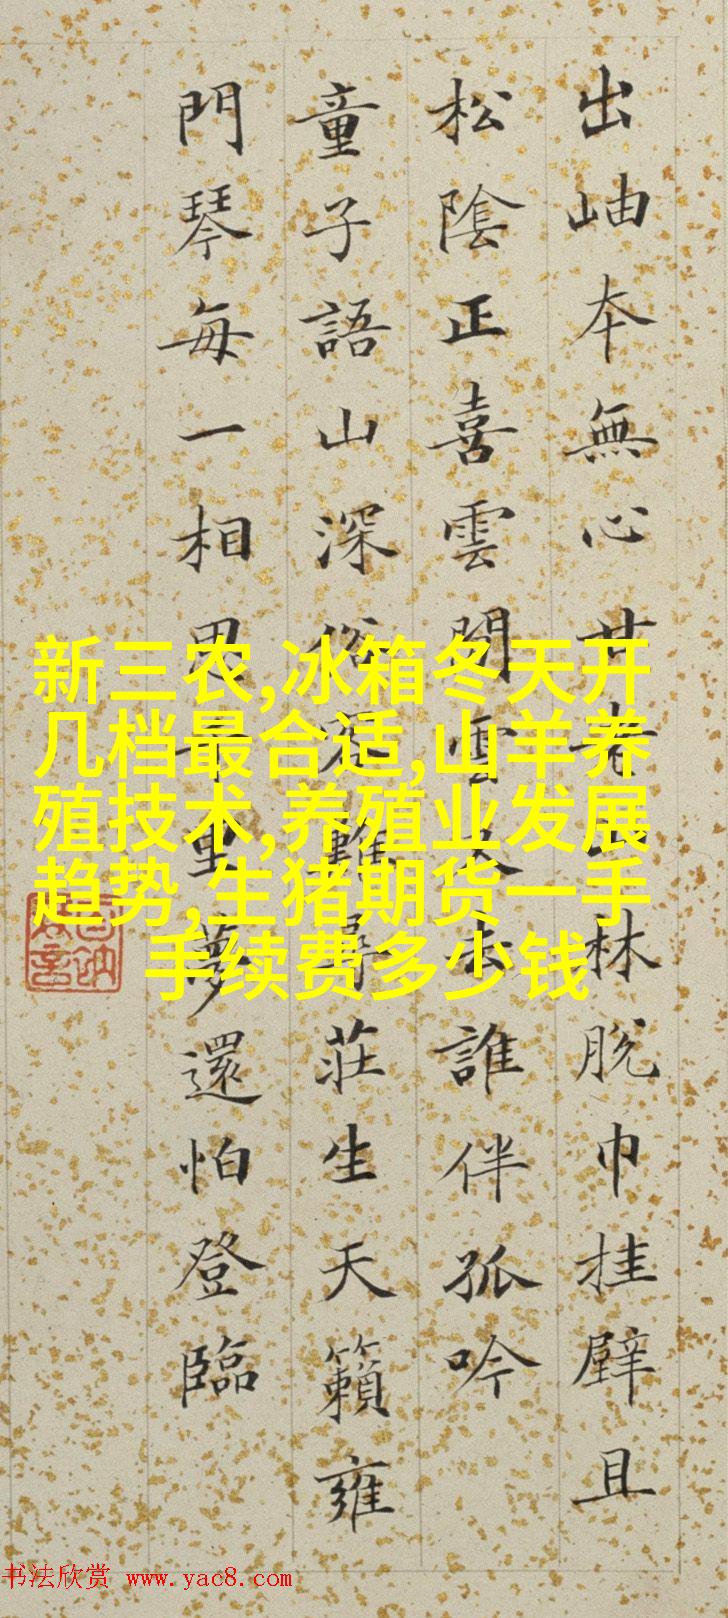 出岫本無心甘老林脫巾挂壁且
松陰正喜雲閒雲又去誰伴孤吟
童子語山深俗難尋莊生天籟雍
門琴每一相思千里夢還怕登臨
新三农,冰箱冬天开
几档最合适,山羊养
殖技术,养殖业发展
趋势,生猪期货一手
手续费多少钱
书法欣赏 www.yac8.com